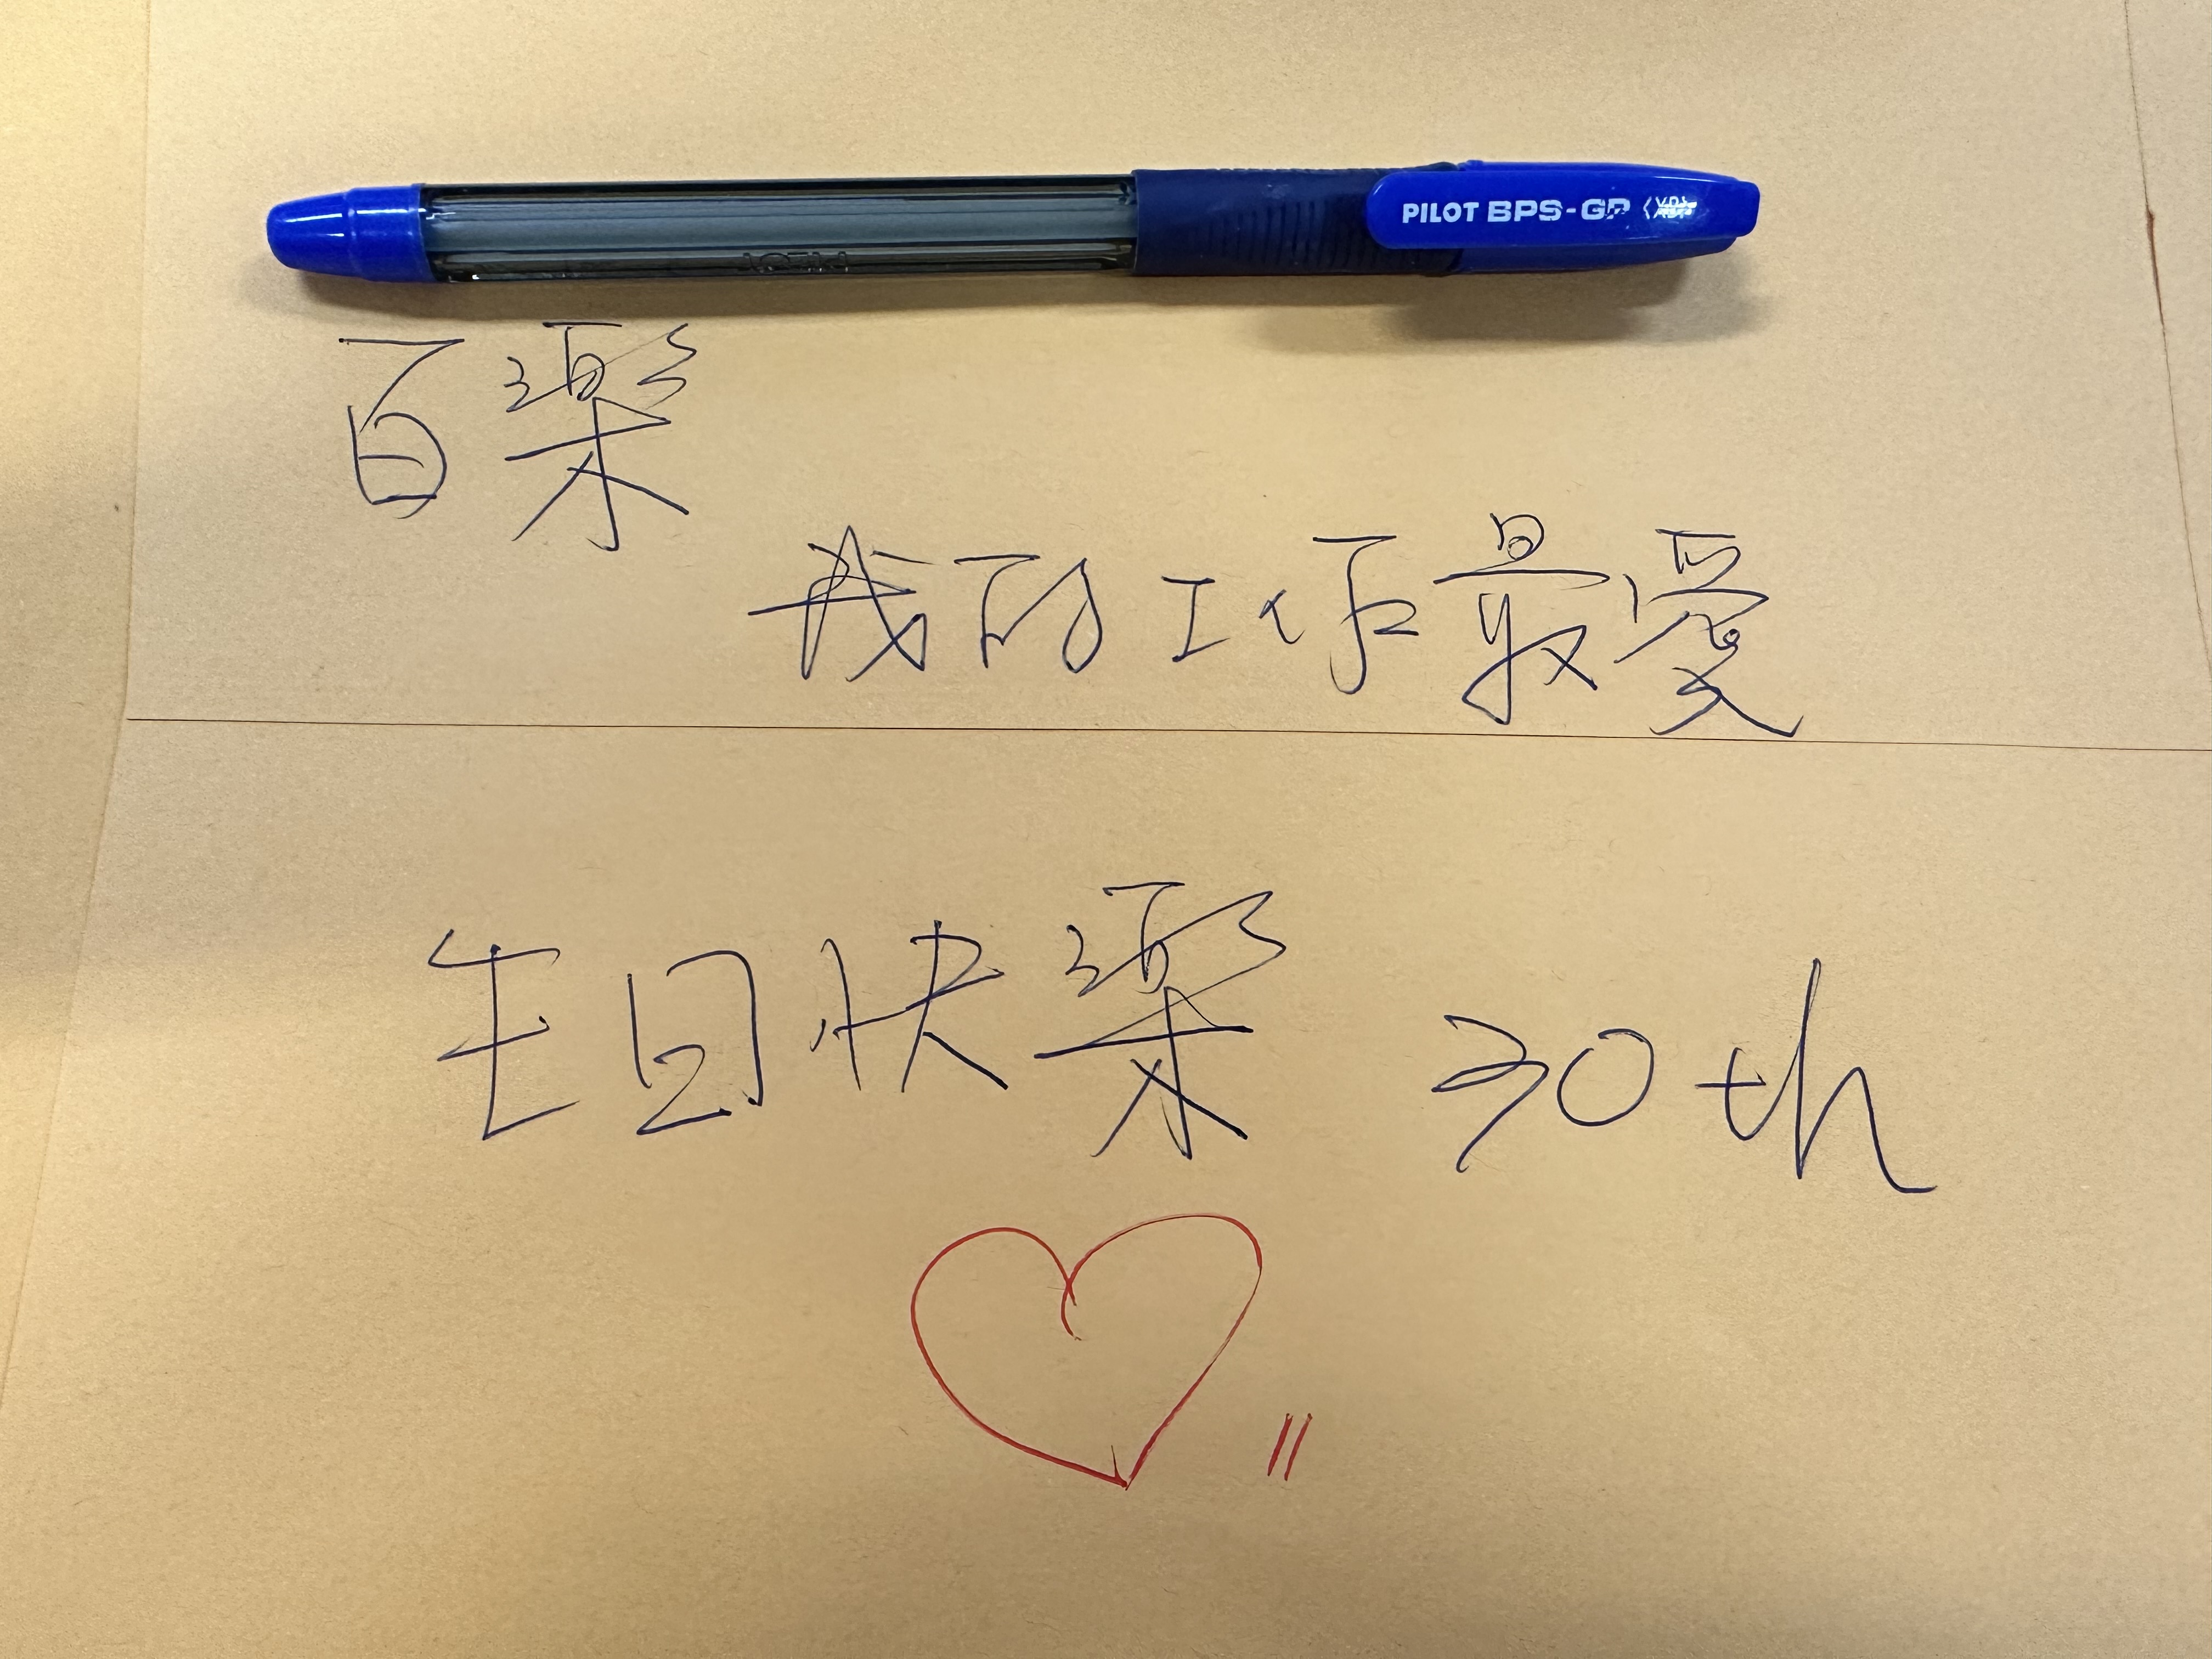 PILOT BPS-GP
百樂
我的工作最愛
生日快樂 30th